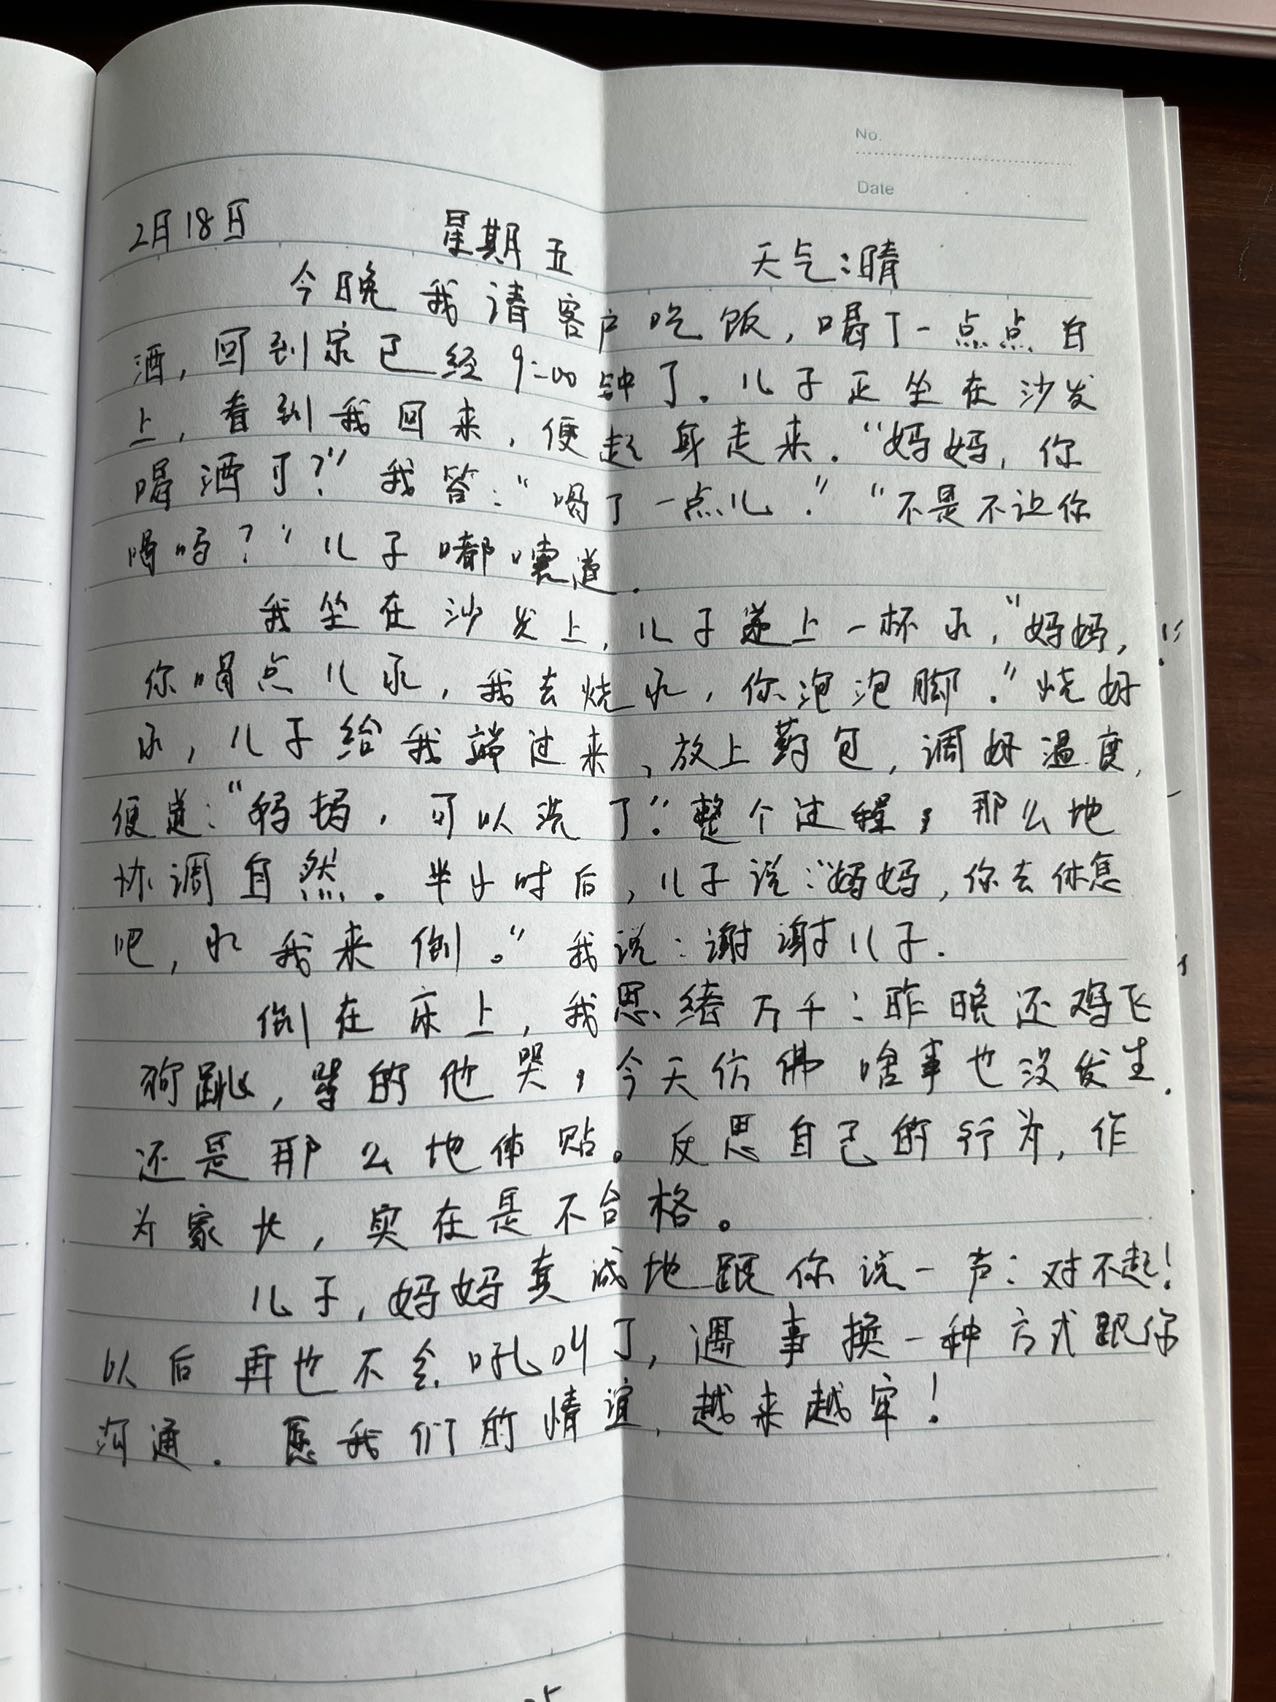 No.
Date
2月18日 星期五 天气:晴
今晚我请客户吃饭,喝了一点点白
酒,回到家已经9:00钟了。儿子正坐在沙发
上,看到我回来,便起身走来.“妈妈,你
喝酒了?”我答:“喝了一点儿.”“不是不让你
喝吗?”儿子嘟囔道.
我坐在沙发上,儿子递上一杯水,“妈妈,
你喝点儿水,我去烧水,你泡泡脚.”烧好
水,儿子给我端过来,放上药包,调好温度,
便道:“妈妈,可以洗了”.整个过程,那么地
协调自然。半小时后,儿子说:“妈妈,你去休息
吧,水我来倒。”我说:谢谢儿子.
倒在床上,我思绪万千:昨晚还鸡飞
狗跳,的他哭,今天仿佛啥事也没发生.
还是那么地体贴。反思自己的行为,作
为家长,实在是不合格。
儿子,妈妈真诚地跟你说一声:对不起!
以后再也不会吼叫了,遇事换一种方式跟你
沟通.愿我们的情谊,越来越牢!